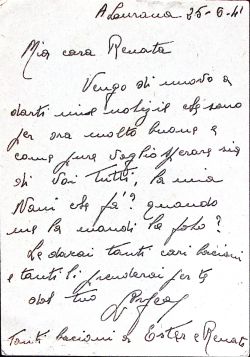 A Laurana 25-6-41
Mia cara Renata
Vengo di nuovo a
darti mie notizie che sono
per ora molto buone e
come pure voglio sperare sia
di voi tutti, la mia
Nani che fa? quando
me la mandi la foto?
Le darai tanti cari bacioni
e tanti li prenderai per te
dal tuo
Tanti bacioni a Ester e Renato